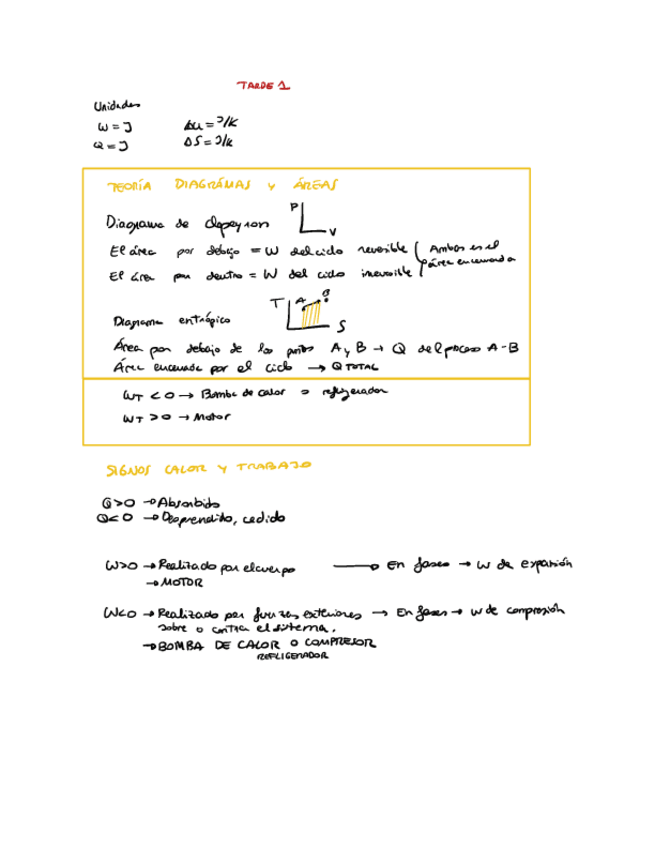 TARDE 1
Unidades
W = J ΔU = J/K
Q = J ΔS = J/K
TEORÍA DIAGRÁMAS Y ÁREAS
Diagrama de clapeyron P V
El área por debajo = W del ciclo reversible Ambos es el
El área por dentro = W del ciclo irreversible área encerrada
Diagrama entrópico T A B S
Área por debajo de los puntos A y B → Q del proceso A-B
Área encerrada por el ciclo → Q TOTAL
WT < 0 → Bomba de calor o refligerador
WT > 0 → Motor
SIGNOS CALOR Y TRABAJO
Q>0 → Absorbido
Q<0 → Desprendido, cedido
W>0 → Realizado por el cuerpo → En gases → W de expansión
→ MOTOR
W<0 → Realizado por fuerzas exteriores → En gases → W de compresión
sobre o contra el sistema.
→ BOMBA DE CALOR O COMPRESOR
REFLIGERADOR